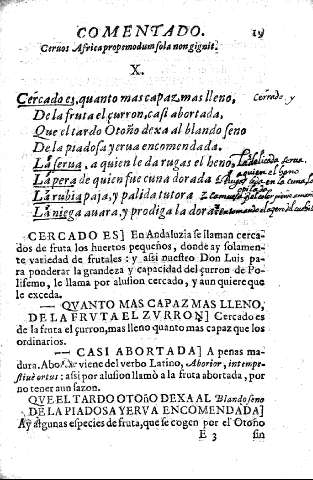 COMENTADO. 19
Ceruos Africa propemodum sola non gignit.
X.
Cercado es, quanto mas capaz, mas lleno, Cercado, y
De la fruta el çurron, casi abortada,
Que el tardo Otoño dexa al blando seno
De la piadosa yerua encomendada.
La serua, a quien le da rugas el heno, La delicada serua.
La pera de quien fue cuna dorada
La rubia paja, y palida tutora
La niega auara, y prodiga la dora
CERCADO ES] En Andaluzia se llaman cerca-
dos de fruta los huertos pequeños, donde ay solamen-
te variedad de frutales: y assi nuestro Don Luis pa-
ra ponderar la grandeza y capacidad del çurron de Po-
lifemo, le llama por alusion cercado, y aun quiere que
le exceda.
— QVANTO MAS CAPAZ MAS LLENO,
DE LA FRVTA EL ZVRRON] Cercado es
de la fruta el çurron, mas lleno quanto mas capaz que los
ordinarios.
— CASI ABORTADA] A penas ma-
dura. viene del verbo Latino, Aborior, intempe-
stiuè ortus: assi por alusion llamò a la fruta abortada, por
no tener aun sazon.
QVE EL TARDO OTOÑO DEXA AL Blando seno
DE LA PIADOSA YERVA ENCOMENDADA]
Ay algunas especies de fruta, que se cogen por el Otoño
E 3 sin